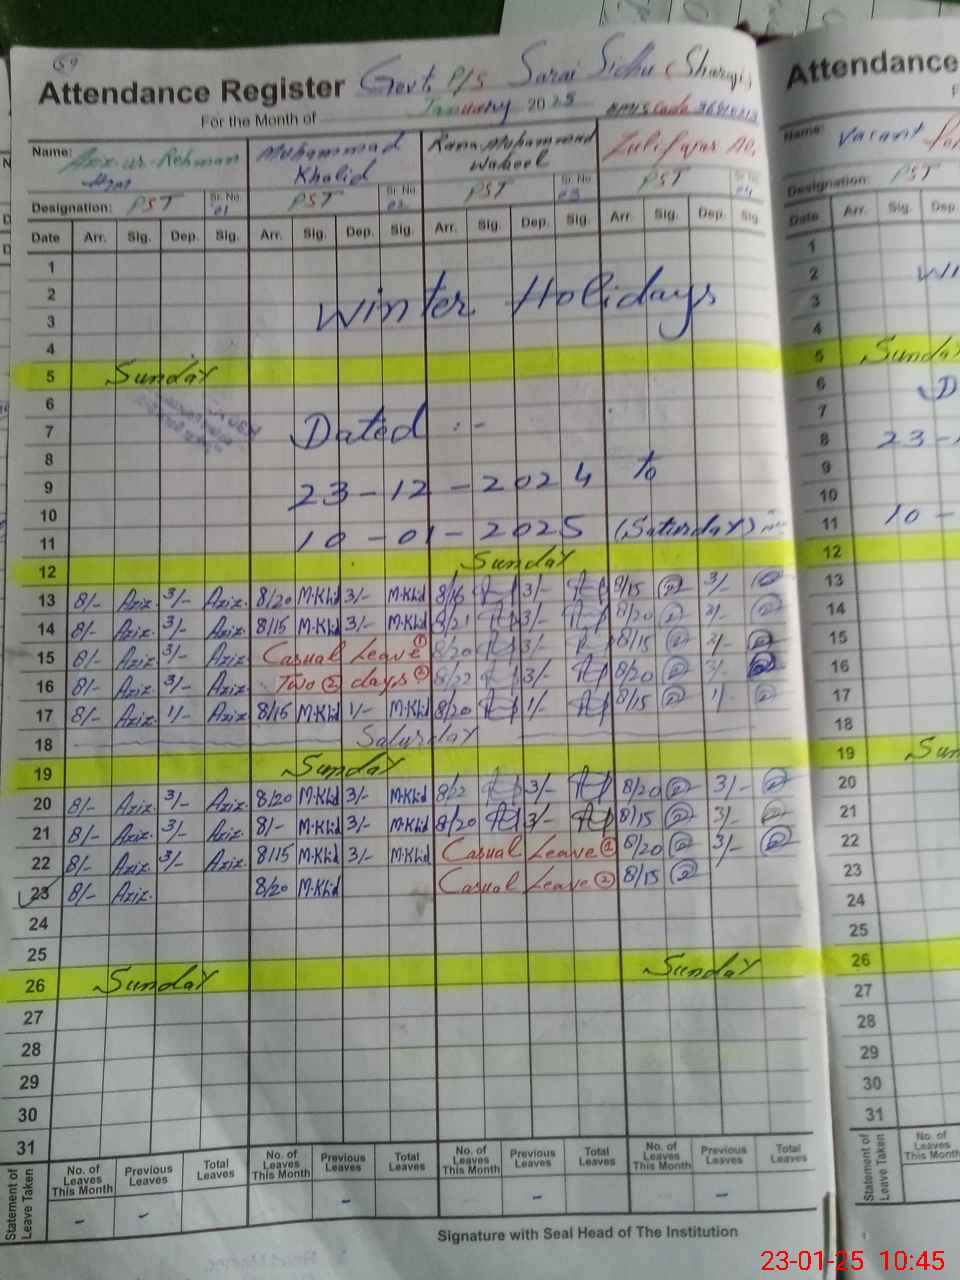 59
Attendance Register Govt. P/S Sarai Sidhu (Sharqi)
For the Month of January 2025 EMIS Code
Name: Aziz-ur-Rehman Muhammad Khalid Rana Muhammad Waheel Zulifqar Ali
Designation: PST Sr. No. 01 PST Sr. No. 02 PST Sr. No. 03 PST Sr. No. 04
Date Arr. Sig. Dep. Sig. Arr. Sig. Dep. Sig. Arr. Sig. Dep. Sig. Arr. Sig. Dep. Sig.
1
2 Winter Holidays
3
4
5 Sunday
6
7 Dated :-
8
9 23-12-2024 to
10
11 10-01-2025 (Saturday)
12 Sunday
13 8/- Aziz 3/- Aziz 8/20 M.Khld 3/- M.Khld 8/16 3/- 8/15 3/-
14 8/- Aziz 3/- Aziz 8/15 M.Khld 3/- M.Khld 8/21 3/- 8/20 3/-
15 8/- Aziz 3/- Aziz Casual Leave 1 8/20 3/- 8/15 3/-
16 8/- Aziz 3/- Aziz Two 2 days 2 8/22 3/- 8/20 3/-
17 8/- Aziz 1/- Aziz 8/15 M.Khld 1/- M.Khld 8/20 1/- 8/15 1/-
18 Saturday
19 Sunday
20 8/- Aziz 3/- Aziz 8/20 M.Khld 3/- M.Khld 8/22 3/- 8/20 3/-
21 8/- Aziz 3/- Aziz 8/- M.Khld 3/- M.Khld 8/20 3/- 8/15 3/-
22 8/- Aziz 3/- Aziz 8/15 M.Khld 3/- M.Khld Casual Leave 1 8/20 3/-
23 8/- Aziz 8/20 M.Khld Casual Leave 2 8/15
24
25
26 Sunday Sunday
27
28
29
30
31
Statement of Leave Taken
No. of Leaves This Month Previous Leaves Total Leaves No. of Leaves This Month Previous Leaves Total Leaves No. of Leaves This Month Previous Leaves Total Leaves No. of Leaves This Month Previous Leaves Total Leaves
- - - - -
Signature with Seal Head of The Institution
Attendance
Name: Vacant
Designation: PST
Date Arr. Sig. Dep.
1
2 Wi
3
4
5 Sunday
6 D
7
8 23-
9
10
11 10-
12
13
14
15
16
17
18
19 Sun
20
21
22
23
24
25
26
27
28
29
30
31
Statement of Leave Taken
No. of Leaves This Month
23-01-25 10:45